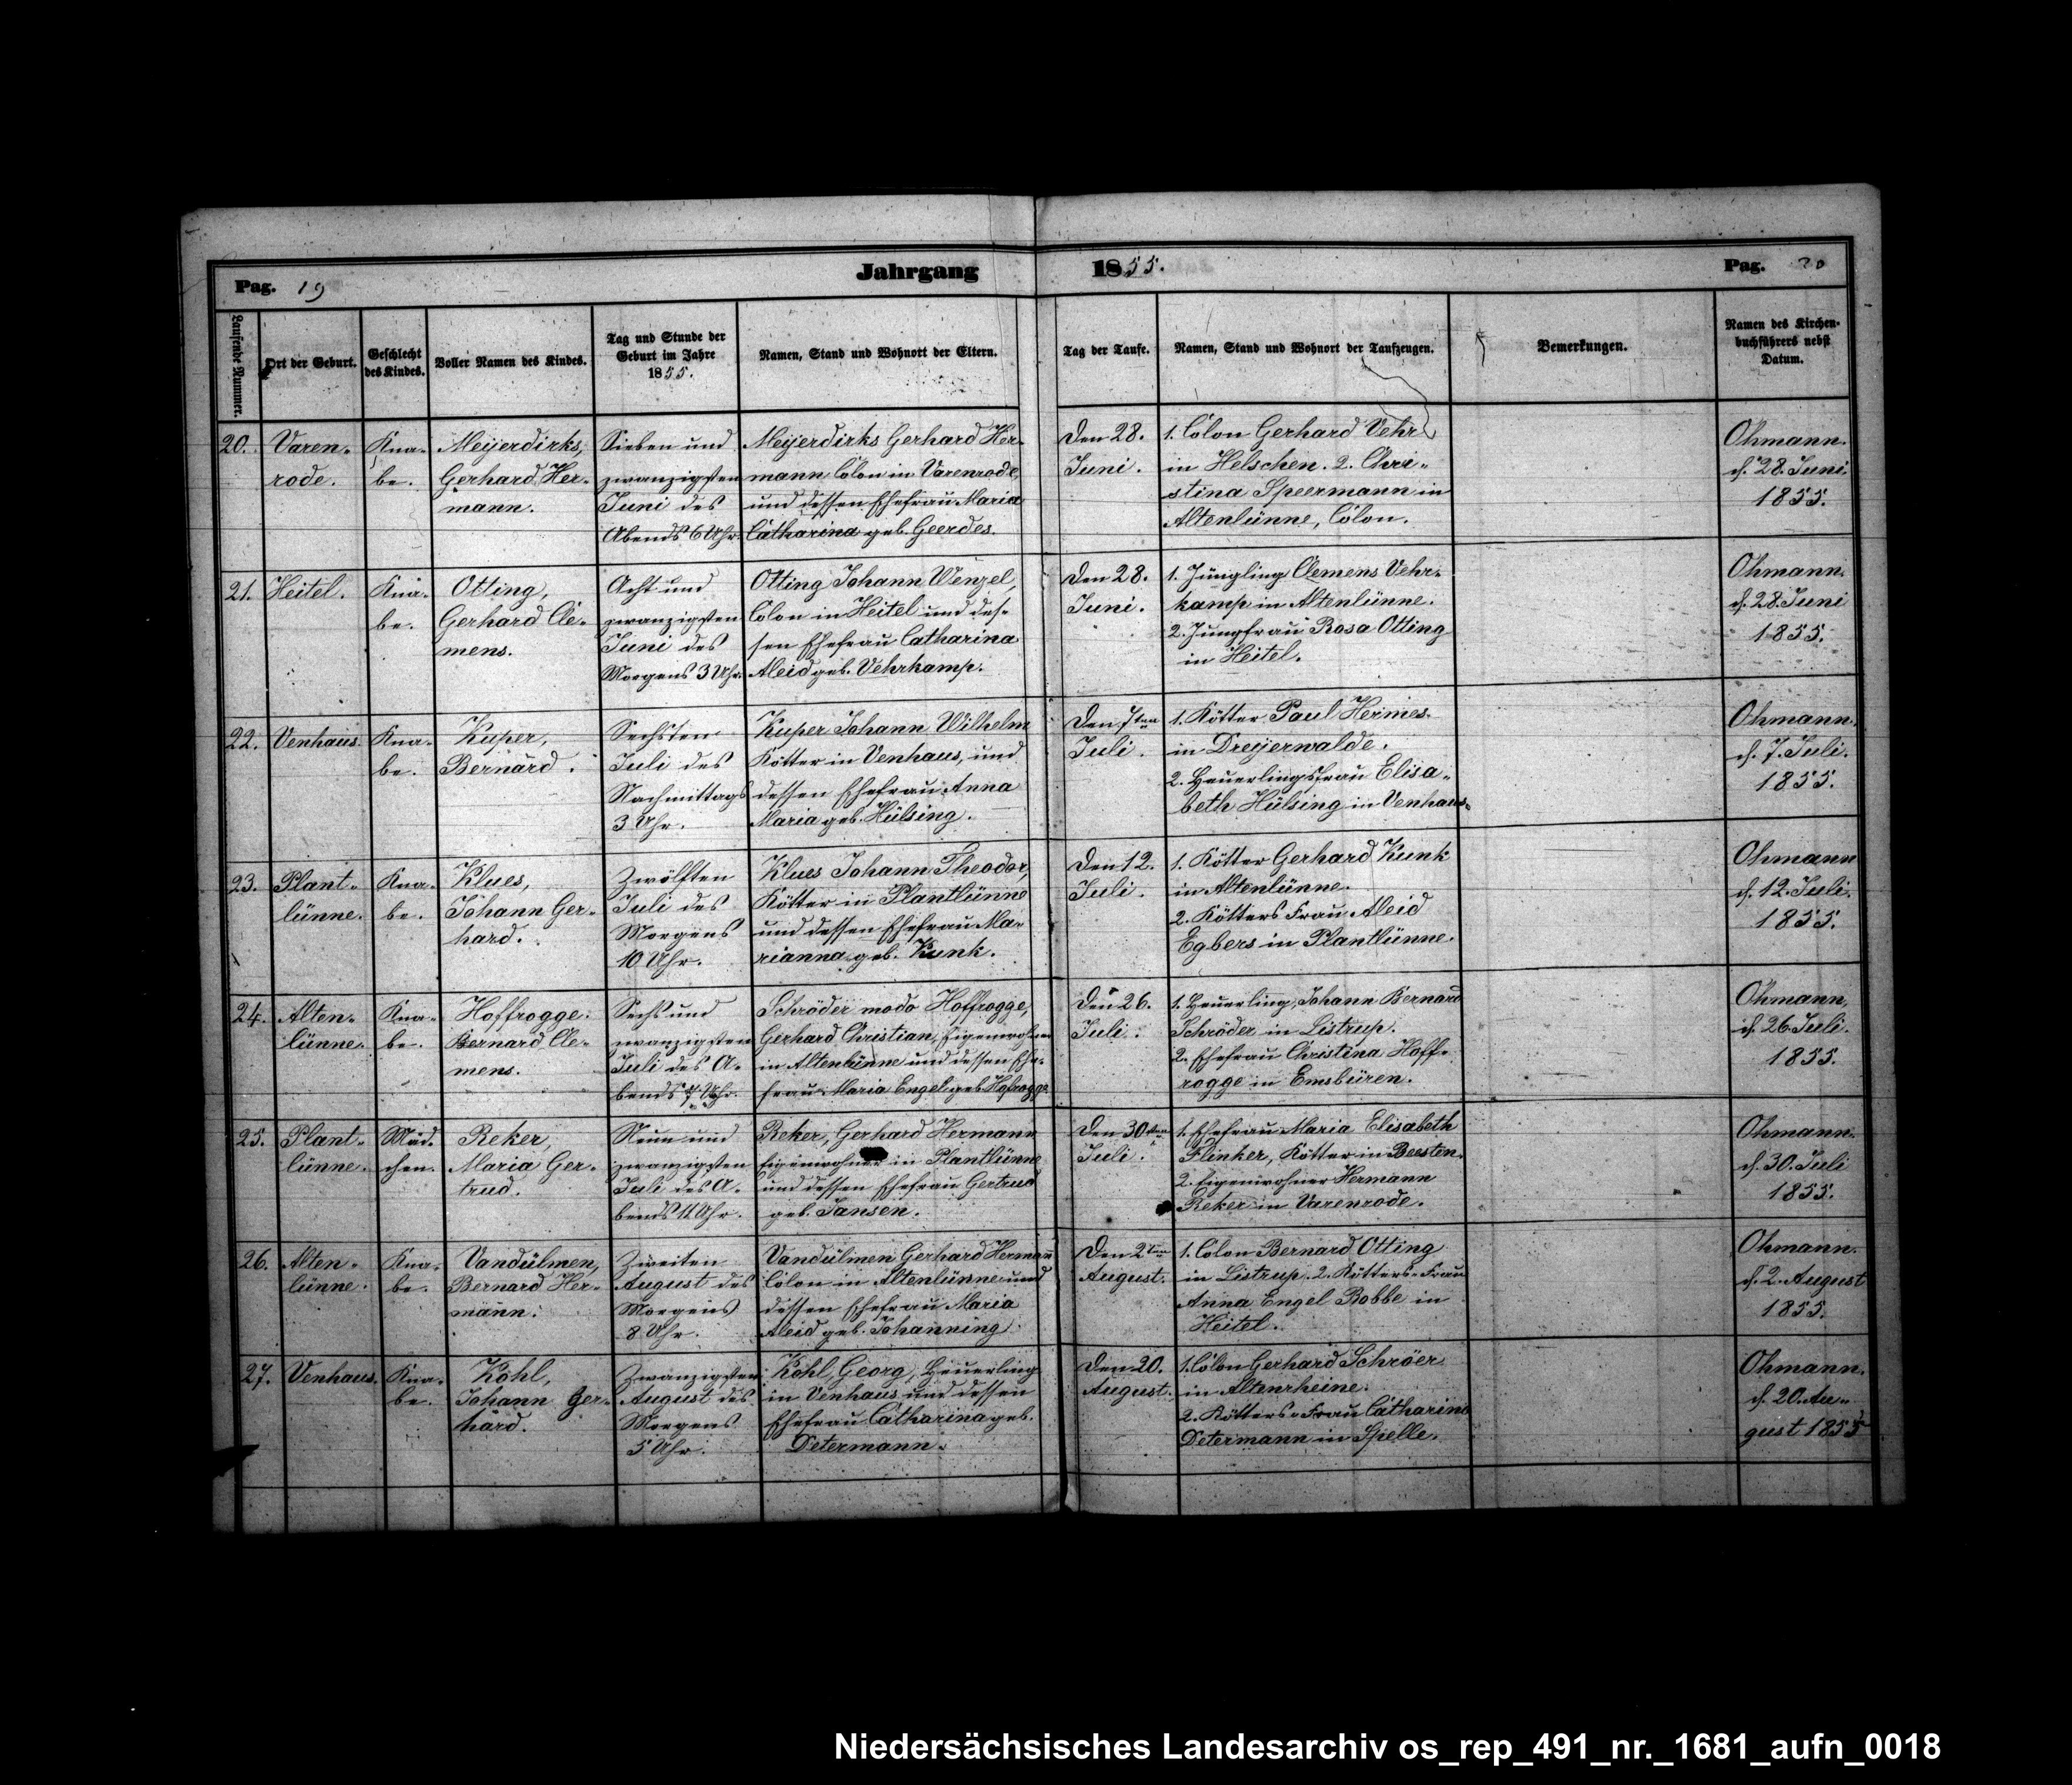 Pag. 19
Jahrgang 1855.
Pag. 20
Laufende Nummer.
Ort der Geburt.
Geschlecht
des Kindes.
Voller Namen des Kindes.
Tag und Stunde der
Geburt im Jahre
1855.
Namen, Stand und Wohnort der Eltern.
Tag der Taufe.
Namen, Stand und Wohnort der Taufzeugen.
Bemerkungen.
Namen des Kirchen-
buchführers nebst
Datum.
20.
Varen-
rode.
Kna-
be.
Meyerdirks,
Gerhard Her-
mann.
Sieben und
zwanzigsten
Juni des
Abends 6 Uhr.
Meyerdirks Gerhard Her-
mann Colon in Varenrode
und dessen Ehefrau Maria
Catharina geb. Geerdes.
Den 28.
Juni.
1. Colon Gerhard Vehr
in Helschen. 2. Chri-
stina Speermann in
Altenlünne, Colon.
Ohmann.
d. 28. Juni.
1855.
21.
Heitel.
Kna-
be.
Otting,
Gerhard Cle-
mens.
Acht und
zwanzigsten
Juni des
Morgens 3 Uhr.
Otting Johann Wenzel,
Colon in Heitel und des-
sen Ehefrau Catharina
Aleid geb. Vehrkamp.
Den 28.
Juni.
1. Jüngling Clemens Vehr-
kamp in Altenlünne.
2. Jungfrau Rosa Otting
in Heitel.
Ohmann.
d. 28. Juni
1855.
22.
Venhaus.
Kna-
be.
Kuper,
Bernard.
Sechsten
Juli des
Nachmittags
3 Uhr.
Kuper Johann Wilhelm
Kötter in Venhaus, und
dessen Ehefrau Anna
Maria geb. Hülsing.
Den 7ten
Juli.
1. Kötter Paul Hermes.
in Dreyerwalde.
2. Heuerlingsfrau Elisa-
beth Hülsing in Venhaus.
Ohmann.
d. 7. Juli.
1855.
23.
Plant-
lünne.
Kna-
be.
Klues,
Johann Ger-
hard.
Zwölften
Juli des
Morgens
10 Uhr.
Klues Johann Theodor,
Kötter in Plantlünne
und dessen Ehefrau Ma-
rianna geb. Kunk.
Den 12.
Juli.
1. Kötter Gerhard Kunk
in Altenlünne.
2. Kötters Frau Aleid
Egbers in Plantlünne.
Ohmann
d. 12. Juli.
1855.
24.
Alten-
lünne.
Kna-
be.
Hoffrogge.
Bernard Cle-
mens.
Sechs und
zwanzigsten
Juli des A-
bends 7 Uhr.
Schröder modo Hoffrogge,
Gerhard Christian, Eigenwohner
in Altenlünne und dessen Ehe-
frau Maria Engel geb. Hofrogge
Den 26.
Juli.
1. Heuerling, Johann Bernard
Schröder in Listrup.
2. Ehefrau Christina Hoff-
rogge in Emsbüren.
Ohmann.
d. 26. Juli.
1855.
25.
Plant-
lünne.
Mäd-
chen.
Reker,
Maria Ger-
trud.
Neun und
zwanzigsten
Juli des A-
bends 11 Uhr.
Reker, Gerhard Hermann
Eigenwohner in Plantlünne
und dessen Ehefrau Gertrud
geb. Jansen.
Den 30ten
Juli.
1. Ehefrau Maria Elisabeth
Flinker, Kötter in Beesten.
2. Eigenwohner Hermann
Reker in Varenrode.
Ohmann.
d. 30. Juli
1855.
26.
Alten-
lünne.
Kna-
be.
Vandülmen,
Bernard Her-
mann.
Zweiten
August des
Morgens
8 Uhr.
Vandülmen Gerhard Hermann
Colon in Altenlünne und
dessen Ehefrau Maria
Aleid geb. Johanning.
Den 2ten
August.
1. Colon Bernard Otting
in Listrup. 2. Kötters-Frau
Anna Engel Robbe in
Heitel.
Ohmann.
d. 2. August
1855.
27.
Venhaus.
Kna-
be.
Kohl,
Johann Ger-
hard.
Zwanzigsten
August des
Morgens
5 Uhr.
Kohl, Georg, Heuerling
in Venhaus und dessen
Ehefrau Catharina geb.
Determann.
Den 20.
August.
1. Colon Gerhard Schröer
in Altenrheine.
2. Kötters-Frau Catharina
Determann in Spelle.
Ohmann.
d. 20. Au-
gust 1855
Niedersächsisches Landesarchiv os_rep_491_nr._1681_aufn_0018